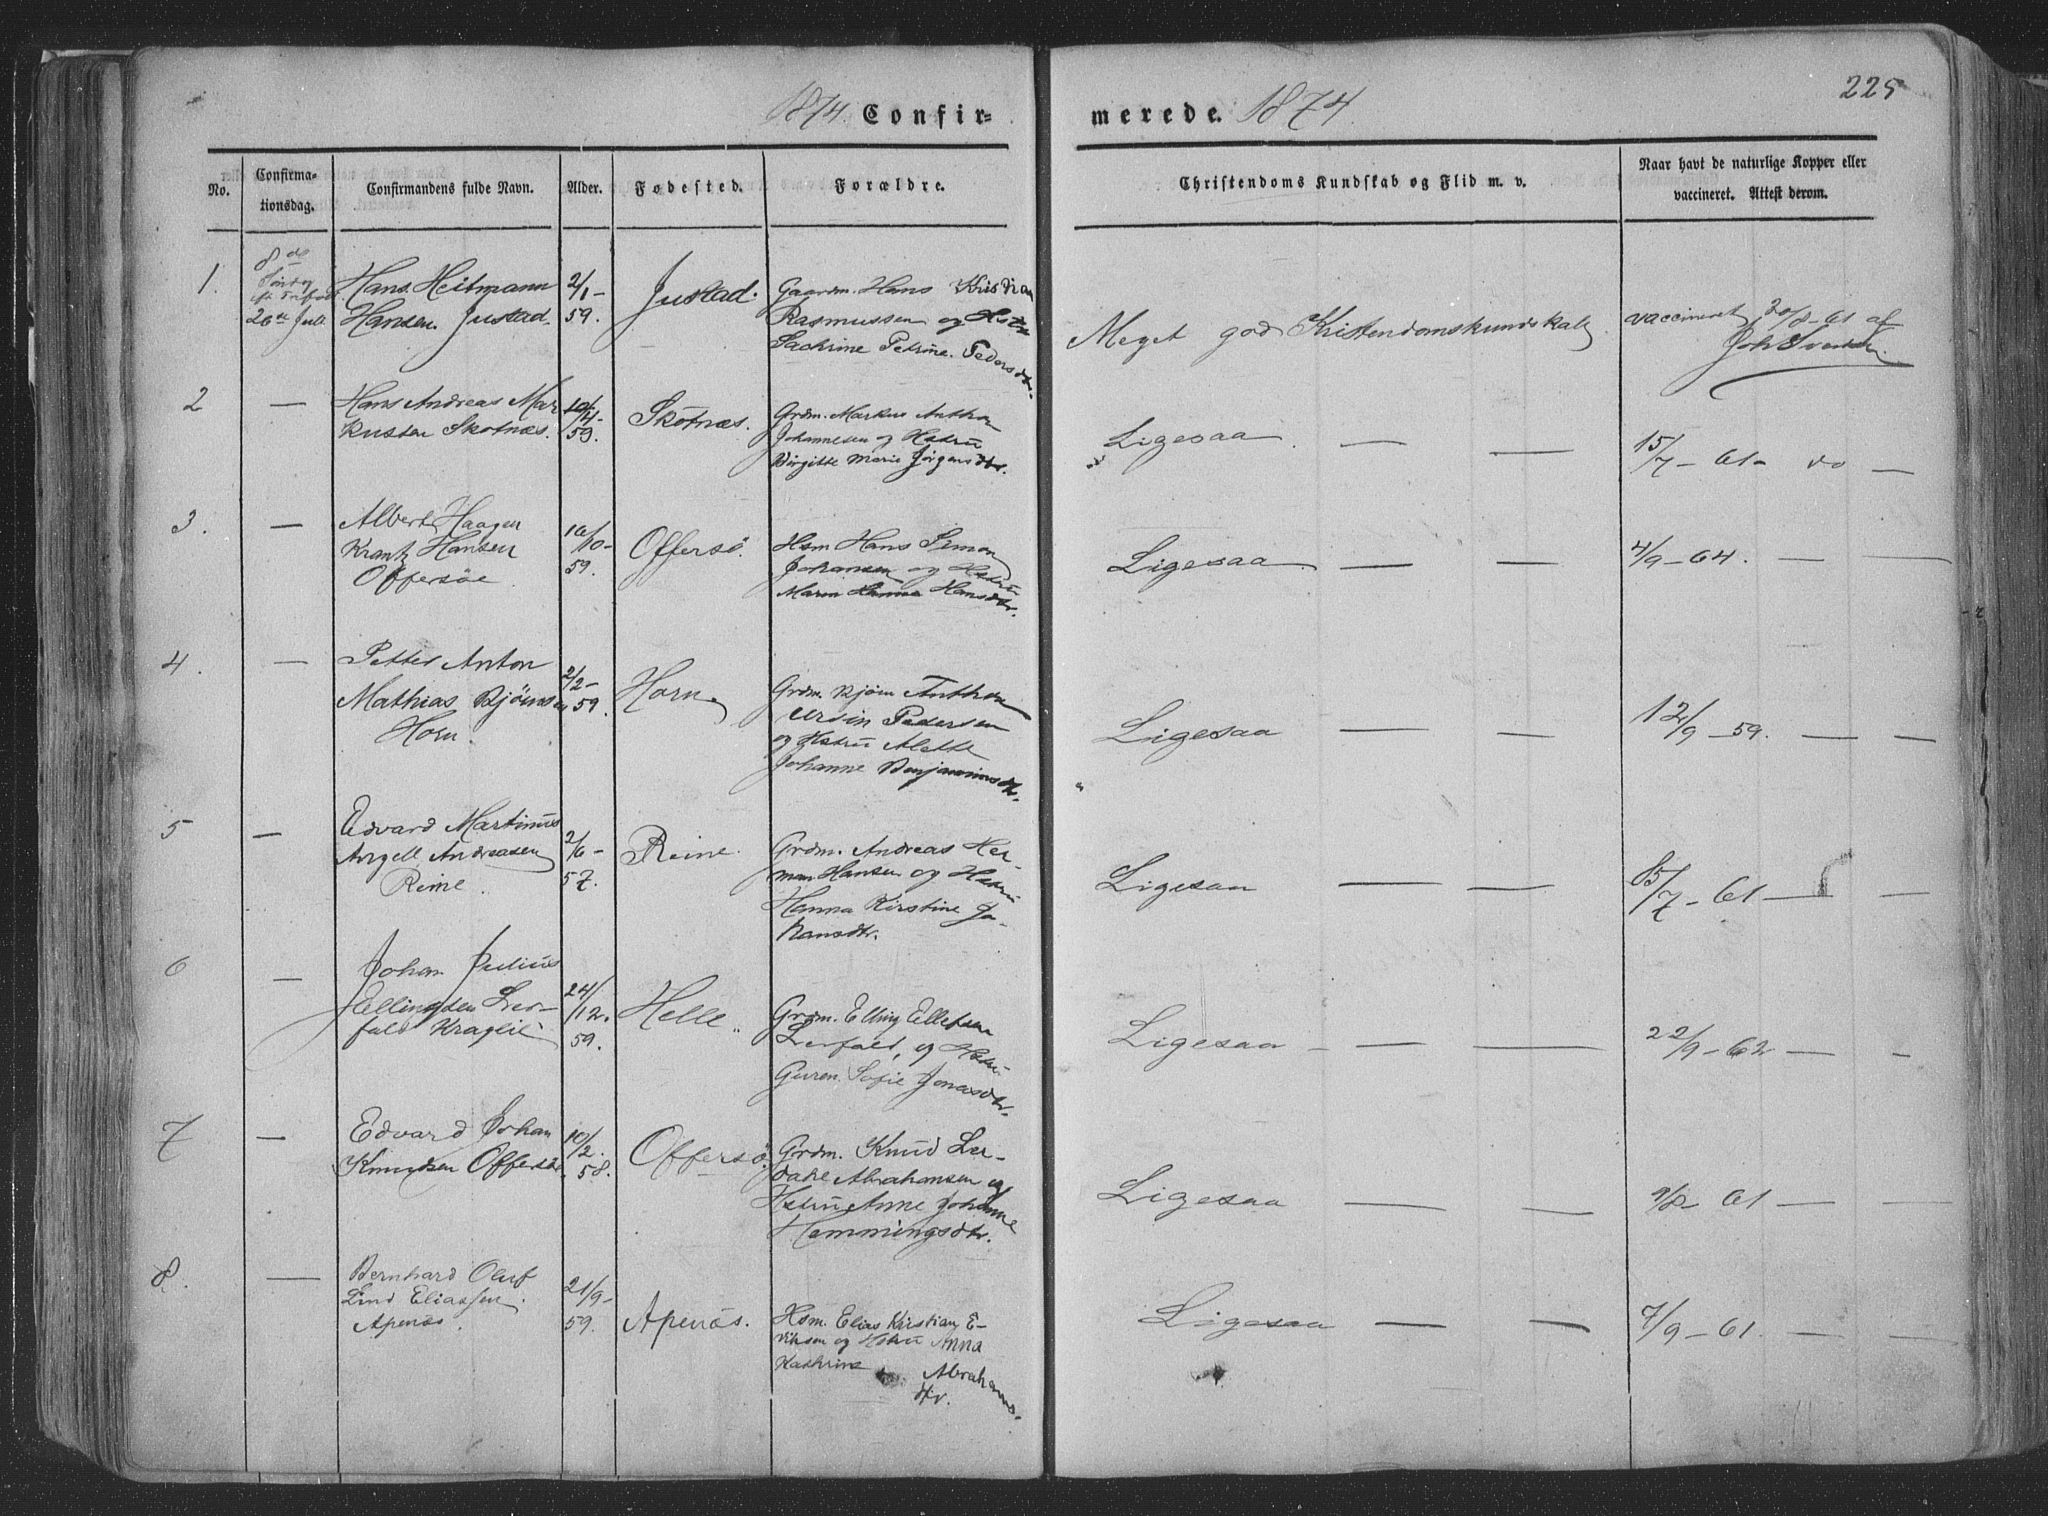 1874. Confir=
merede. 1874.
225
No.
Confirma-
tionsdag.
Confirmandens fulde Navn.
Alder.
Fødested.
Forældre.
Christendoms Kundskab og Flid m. v.
Naar havt de naturlige Kopper eller
vaccineret. Attest derom.
1.
8de
26de Juli
Hans Heitmann
Hansen Justad.
2/1-
59.
Justad.
Gaardm. Hans Kristian
Rasmussen og Hstru
Petrine Pedersdtr.
Meget god Kristendomskundskab
vaccineret 20/8-61 af
Joh Iversen
2
—
Hans Andreas Mar
kusen Skotnæs.
10/11-
59.
Skotnæs.
Grdm. Markus Anthon
Johannesen og Hstru
Birgitte Marie Jørgensdtr.
Ligesaa — —
15/7-61- do —
3.
—
Albert Haagen
Krantz Hansen
Offersøe.
10-
59.
Offersø.
Hsm Hans Simon
Johansen og Hstru
Maren Hanna Hansdtr.
Ligesaa — —
4/9-64. — —
4.
—
Petter Anton
Mathias Bjørnsen
Horn.
2/2-
59.
Horn
Grdm. Bjørn Anthon
Ursin Pedersen
og Hstru Alette
Johanne Benjaminsdtr.
Ligesaa — —
12/9-59. — —
5
—
Edvard Martinus
Angell Andreasen
Reine.
2/6-
57.
Reine.
Grdm. Andreas Her-
man Hansen og Hstru
Hanna Kirstine Jo-
hansdtr.
Ligesaa — —
15/7-61 — —
6
—
Johan Julius
Ellingsen Ler-
fald
24/12.
59.
Helle
Grdm. Elling Ellefsen
Lerfald, og Hstru
Guren Sofie Jonasdtr.
Ligesaa - — —
22/9-62 — —
7
—
Edvard Johan
Knudsen Offersø.
10/2.
58.
Offersø.
Grdm. Knud Ler-
Abrahamsen og
Hstru Anne Johanne
Hemmingsdtr.
Ligesaa — —
9/8-61 — —
8.
—
Bernhard Oluf
Lind Eliassen
Apenæs.
21/9-
59.
Apenæs.
Hsm. Elias Kirstian E-
riksen og Hstru Anna
Kathrine Abrahams-
dtr.
Ligesaa — —
7/9-61. — —